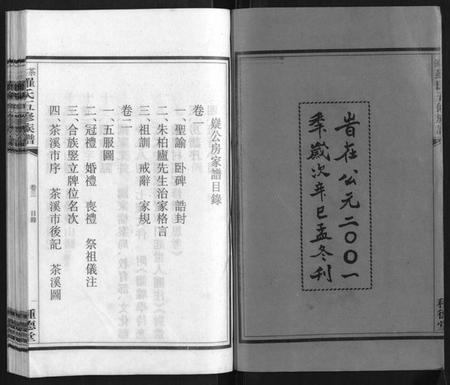 旹在公元二〇〇一
秊歲次辛巳孟冬刊
種德堂
嶽公房家譜目錄
卷一
一、聖諭 臥碑 誥封
二、朱柏廬先生治家格言
三、祖訓 戒辭 家規
卷二
一、五服圖
二、冠禮 婚禮 喪禮 祭祖儀注
三、合族豎立牌位名次
四、茶溪市序 茶溪市後記 茶溪圖
茶羅氏五修族譜
卷三 目錄
種德堂